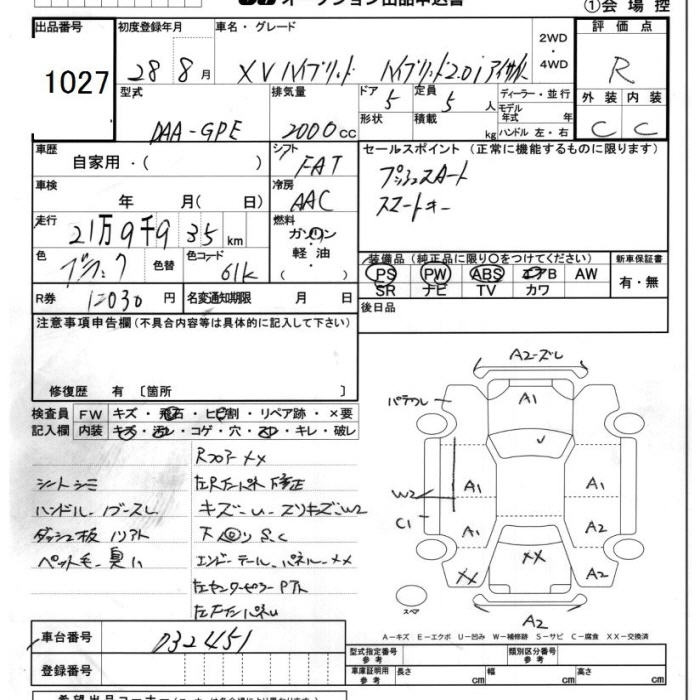 オークション出品申込書 ①会場控
出品番号 初度登録年月 車名・グレード 2WD・4WD 評価点
1027 28 8月 XVハイブリッド ハイブリッド2.0iアイサイト R
型式 排気量 ドア 5 定員 5人 ディーラー・並行 外装 内装
DAA-GPE 2000cc 形状 積載 kg モデル年式 年 ハンドル 左・右 C C
車歴 自家用・( ) シフト FAT セールスポイント (正常に機能するものに限ります)
車検 年 月( 日) 冷房 AAC プッシュスタート
スマートキー
走行 21万9千935km 燃料 ガソリン・軽油・( )
色 ブラック 色替 色コード 61K
装備品 (純正品に限り○をつけてください) 新車保証書
PS PW ABS エアB AW 有・無
SR ナビ TV カワ
R券 12030円 名変通知期限 月 日
後日品
注意事項申告欄 (不具合内容等は具体的に記入して下さい)
修復歴 有 [箇所 ]
検査員記入欄 FW キズ・飛石・ヒビ割・リペア跡・×要
内装 キズ・汚レ・コゲ・穴・スレ・キレ・破レ
Rフロアーxx
シートシミ 左Rインパネ修正
ハンドル、ノブスレ キズ-u-スリキズ-W2
ダッシュ板 ソリアト 下回りS.C
ペット毛、臭い エンドー テール、パネル-xx
左センターピラーPアト
左Fインパネu
A2-ズレ
パテワレ A1
W2 A1 A1
C1 A1 A2
XX XX A2
スペア A2
A-キズ E-エクボ U-凹み W-補修跡 S-サビ C-腐食 XX-交換済
車台番号 032451
登録番号
型式指定番号 参考 類別区分番号 参考
車庫証明用 参考 長さ cm 幅 cm 高さ cm